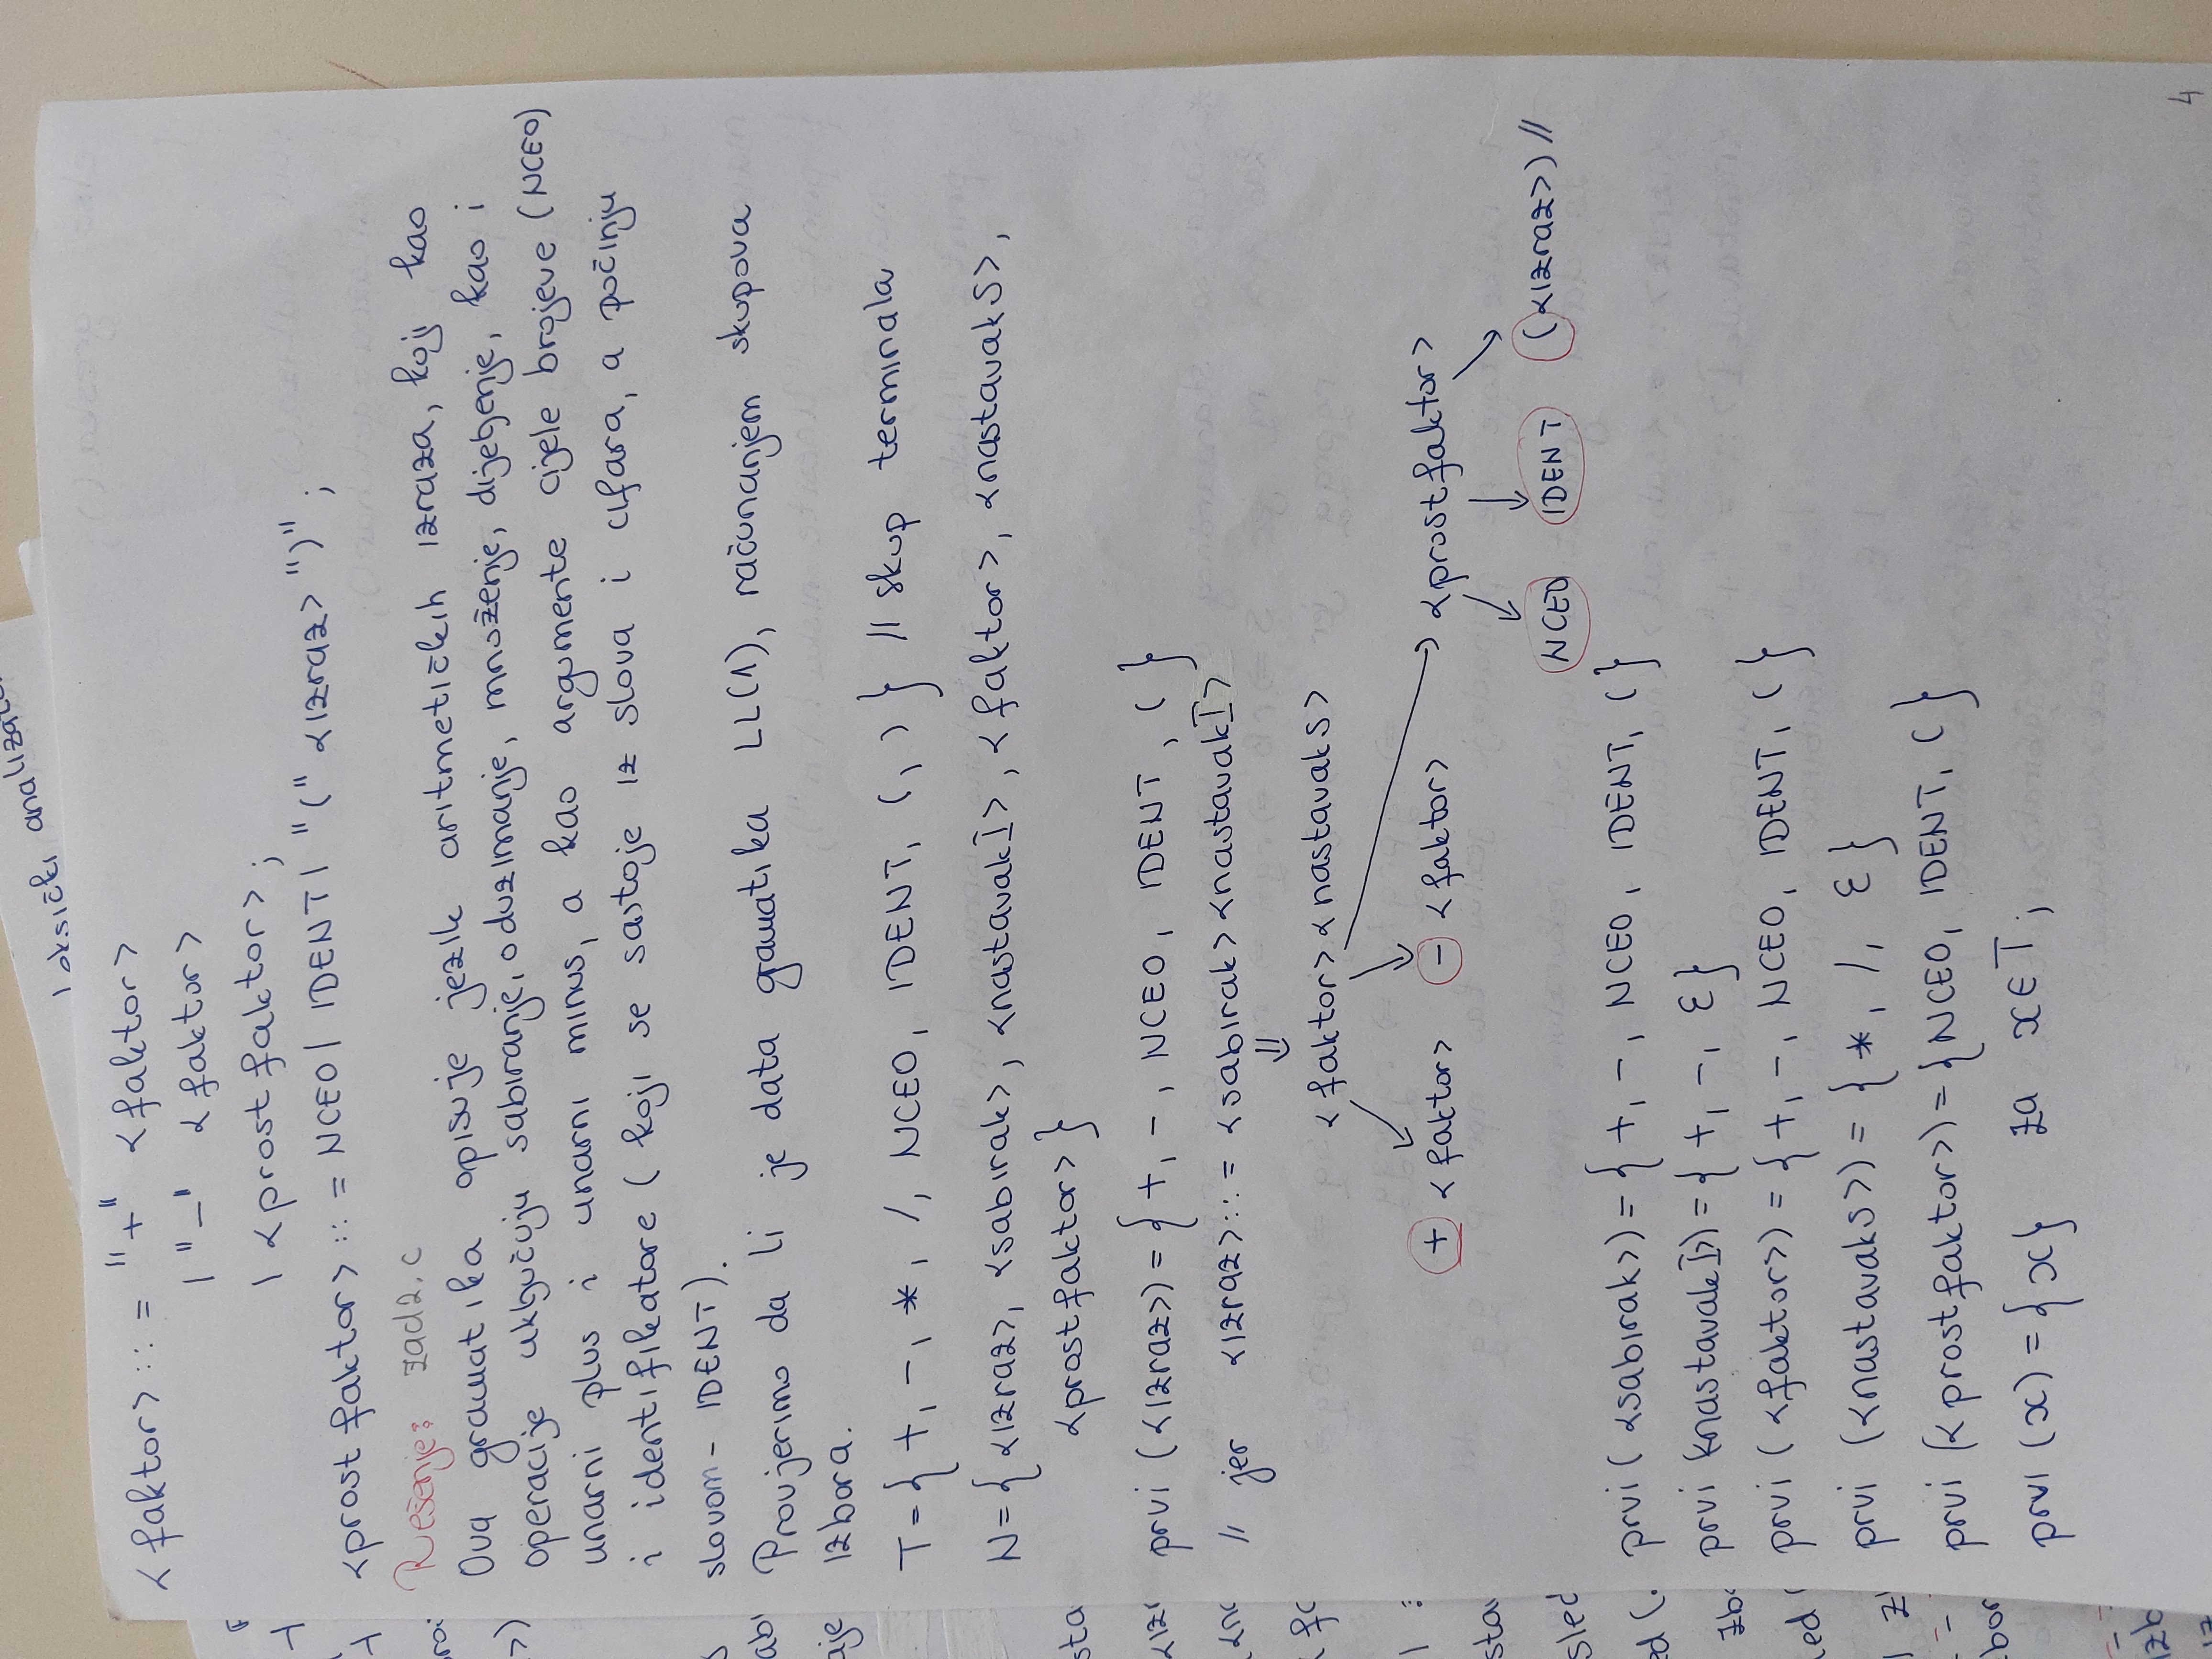 leksički analizator
<faktor> ::= "+" <faktor>
| "-" <faktor>
| <prostfaktor>;
<prostfaktor> ::= NCEO | IDENT | "(" <izraz> ")" ;
Rešenje: zad2.c
Ova gramatika opisuje jezik aritmetičkih izraza, koji kao
operacije uključuju sabiranje, oduzimanje, množenje, dijeljenje, kao i
unarni plus i unarni minus, a kao argumente cijele brojeve (NCEO)
i identifikatore ( koji se sastoje iz slova i cifara, a počinju
slovom - IDENT).
Provjerimo da li je data gamatika LL(1), računanjem skupova
izbora.
T={ +, -, *, /, NCEO, IDENT, (, ) } // skup terminala
N={ <izraz>, <sabirak>, <nastavakI>, <faktor>, <nastavakS>,
<prostfaktor> }
prvi (<izraz>) = { +, -, NCEO, IDENT, ( }
// jer <izraz> ::= <sabirak> <nastavakI>
⇓
<faktor> <nastavakS>
+ <faktor> - <faktor> → <prostfaktor>
NCEO IDENT (<izraz>) //
prvi ( <sabirak>) = { +, -, NCEO, IDENT, ( }
prvi (<nastavakI>) = { +, -, ε }
prvi ( <faktor>) = { +, -, NCEO, IDENT, ( }
prvi (<nastavakS>) = { *, /, ε }
prvi (<prostfaktor>) = { NCEO, IDENT, ( }
prvi (x) = {x} za x∈T;
4